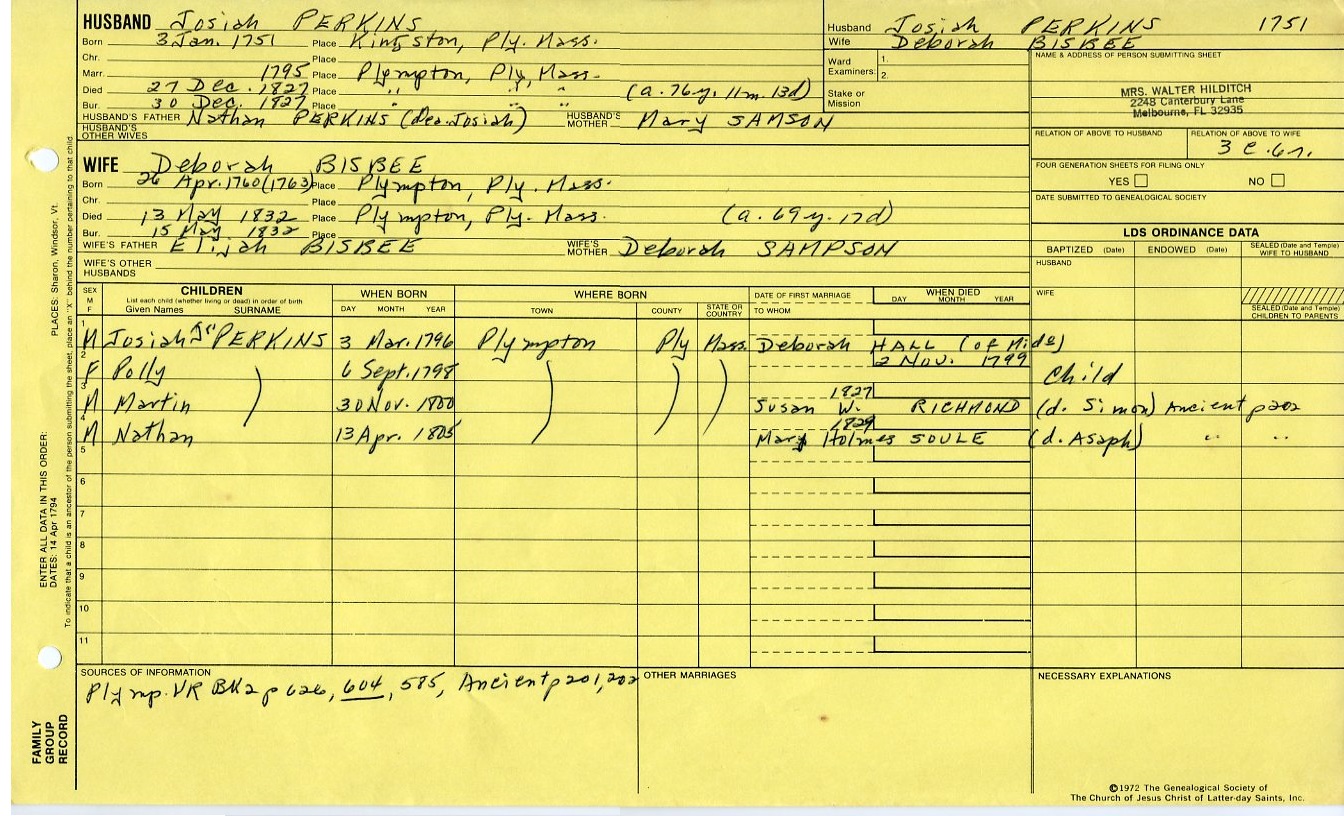 HUSBAND Josiah PERKINS
Born 3 Jan. 1751 Place Kingston, Ply. Mass.
Chr. Place
Marr. 1795 Place Plympton, Ply, Mass.
Died 27 Dec. 1827 Place " " " (a. 76y. 11m. 13d)
Bur. 30 Dec. 1827 Place " " "
HUSBAND'S FATHER Nathan PERKINS (dea. Josiah) HUSBAND'S MOTHER Mary SAMSON
HUSBAND'S OTHER WIVES
Husband Josiah PERKINS 1751
Wife Deborah BISBEE
Ward Examiners: 1.
2.
Stake or Mission
NAME & ADDRESS OF PERSON SUBMITTING SHEET
MRS. WALTER HILDITCH
2248 Canterbury Lane
Melbourne, FL 32935
RELATION OF ABOVE TO HUSBAND RELATION OF ABOVE TO WIFE
3 c. 6r.
FOUR GENERATION SHEETS FOR FILING ONLY
YES NO
DATE SUBMITTED TO GENEALOGICAL SOCIETY
WIFE Deborah BISBEE
Born 26 Apr. 1760 (1763) Place Plympton, Ply. Mass.
Chr. Place
Died 13 May 1832 Place Plympton, Ply. Mass. (a. 69y. 17d)
Bur. 15 May 1832 Place
WIFE'S FATHER Elijah BISBEE WIFE'S MOTHER Deborah SAMPSON
WIFE'S OTHER HUSBANDS
LDS ORDINANCE DATA
BAPTIZED (Date) ENDOWED (Date) SEALED (Date and Temple) WIFE TO HUSBAND
HUSBAND
WIFE
SEALED (Date and Temple) CHILDREN TO PARENTS
SEX M F CHILDREN List each child (whether living or dead) in order of birth Given Names SURNAME WHEN BORN DAY MONTH YEAR WHERE BORN TOWN COUNTY STATE OR COUNTRY DATE OF FIRST MARRIAGE TO WHOM WHEN DIED DAY MONTH YEAR
1 M Josiah Jr PERKINS 3 Mar. 1796 Plympton Ply Mass. Deborah HALL (of Mido)
2 F Polly 6 Sept. 1798 2 Nov. 1799 Child
3 M Martin 30 Nov. 1800 1827 Susan W. RICHMOND (d. Simon) Ancient p202
4 M Nathan 13 Apr. 1805 1829 Mary Holmes SOULE (d. Asaph) " "
5
6
7
8
9
10
11
SOURCES OF INFORMATION
Plymp. VR BK2 p 626, 604, 585, Ancient p 201, 202
OTHER MARRIAGES
NECESSARY EXPLANATIONS
©1972 The Genealogical Society of
The Church of Jesus Christ of Latter-day Saints, Inc.
FAMILY GROUP RECORD
ENTER ALL DATA IN THIS ORDER:
DATES: 14 Apr 1794
PLACES: Sharon, Windsor, Vt.
To indicate that a child is an ancestor of the person submitting the sheet, place an "X" behind the number pertaining to that child.